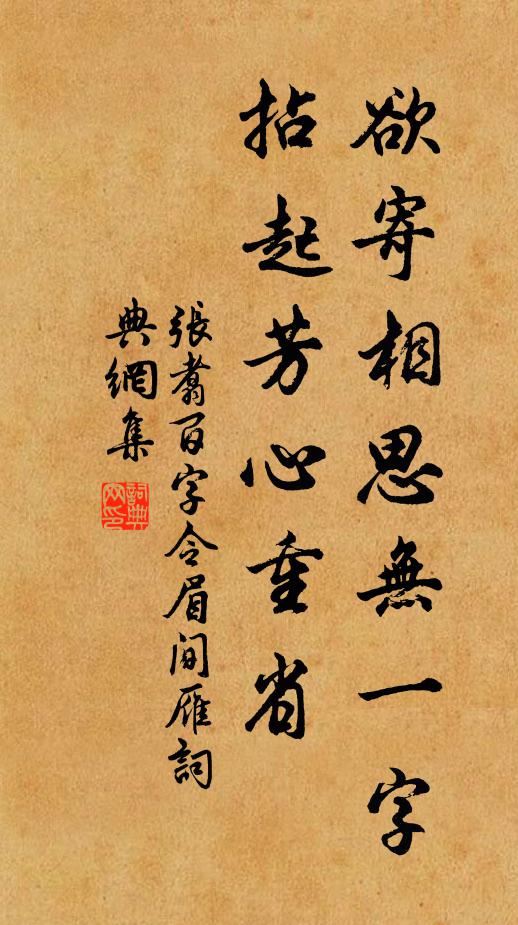 欲寄相思無一字
拈起芳心重省
張翥百字令眉間雁詞
典網集
詞典
网印